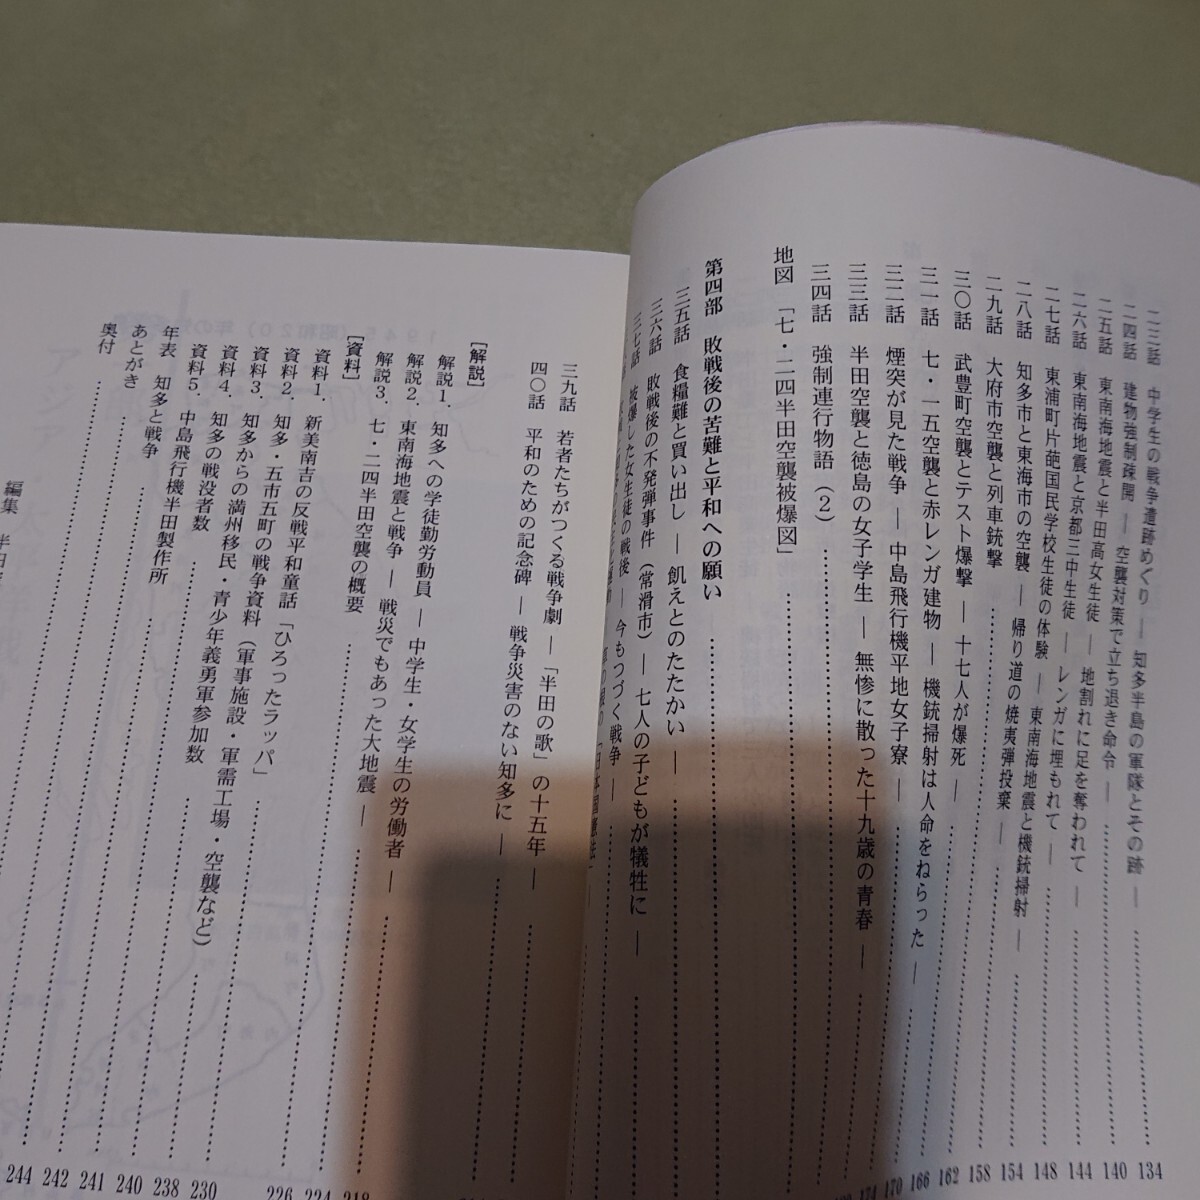 二三話　中学生の戦争遺跡めぐり ― 知多半島の軍隊とその跡 ― 134
二四話　建物強制疎開 ― 空襲対策で立ち退き命令 ― 140
二五話　東南海地震と半田高女生徒 ― 地割れに足を奪われて ― 144
二六話　東南海地震と京都三中生徒 ― レンガに埋もれて ― 148
二七話　東浦町片葩国民学校生徒の体験 ― 東南海地震と機銃掃射 ― 154
二八話　知多市と東海市の空襲 ― 帰り道の焼夷弾投棄 ― 158
二九話　大府市空襲と列車銃撃 162
三〇話　武豊町空襲とテスト爆撃 ― 十七人が爆死 ― 166
三一話　七・一五空襲と赤レンガ建物 ― 機銃掃射は人命をねらった ― 170
三二話　煙突が見た戦争 ― 中島飛行機平地女子寮 ― 174
三三話　半田空襲と徳島の女子学生 ― 無惨に散った十九歳の青春 ―
三四話　強制連行物語（2）
地図　「七・二四半田空襲被爆図」
第四部　敗戦後の苦難と平和への願い
三五話　食糧難と買い出し ― 飢えとのたたかい ―
三六話　敗戦後の不発弾事件（常滑市）― 七人の子どもが犠牲に ―
三七話　被爆した女生徒の戦後 ― 今もつづく戦争 ―
三九話　若者たちがつくる戦争劇 ―「半田の歌」の十五年 ―
四〇話　平和のための記念碑 ― 戦争災害のない知多に ―
［解説］
解説1．知多への学徒勤労動員 ― 中学生・女学生の労働者 ―
解説2．東南海地震と戦争 ― 戦災でもあった大地震 ―
解説3．七・二四半田空襲の概要 218
［資料］
資料1．新美南吉の反戦平和童話「ひろったラッパ」 224
資料2．知多・五市五町の戦争資料（軍事施設　軍需工場・空襲など） 226
資料3．知多からの満州移民・青少年義勇軍参加数 230
資料4．知多の戦没者数 238
資料5．中島飛行機半田製作所 240
年表　知多と戦争 241
あとがき 242
奥付 244
編集　半田